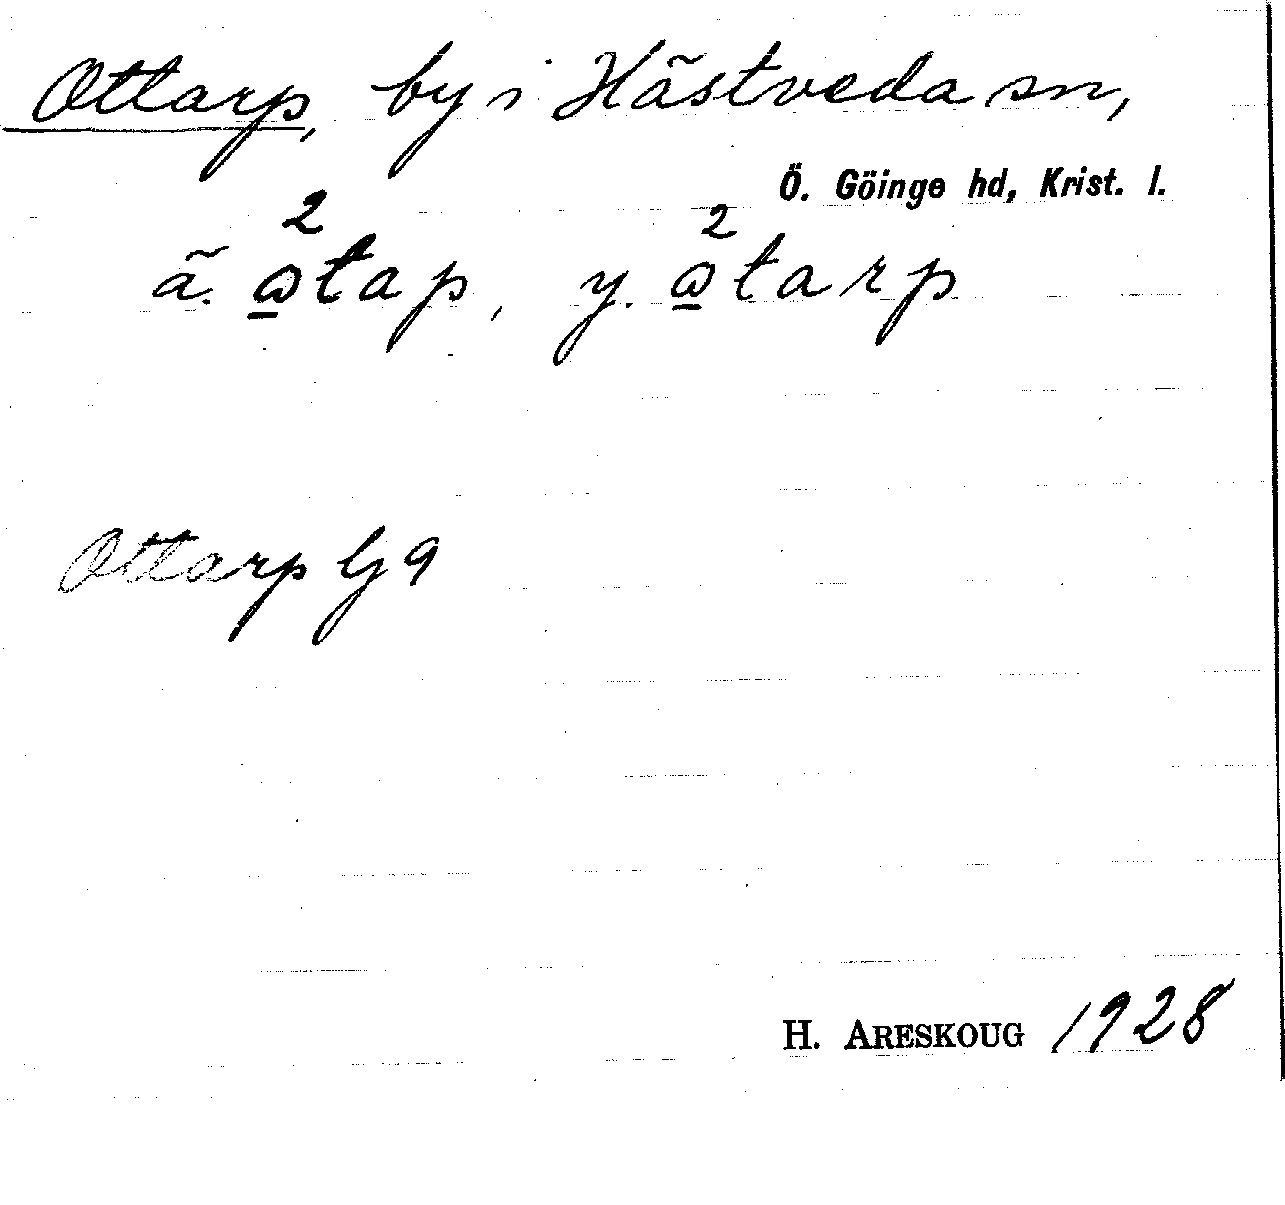 Ottarp, by i Hästveda sn,
Ö. Göinge hd, Krist. l.
ä. ɷ̱²tap, y. ɷ̱²tarp
Ottarp G 9
H. ARESKOUG 1928